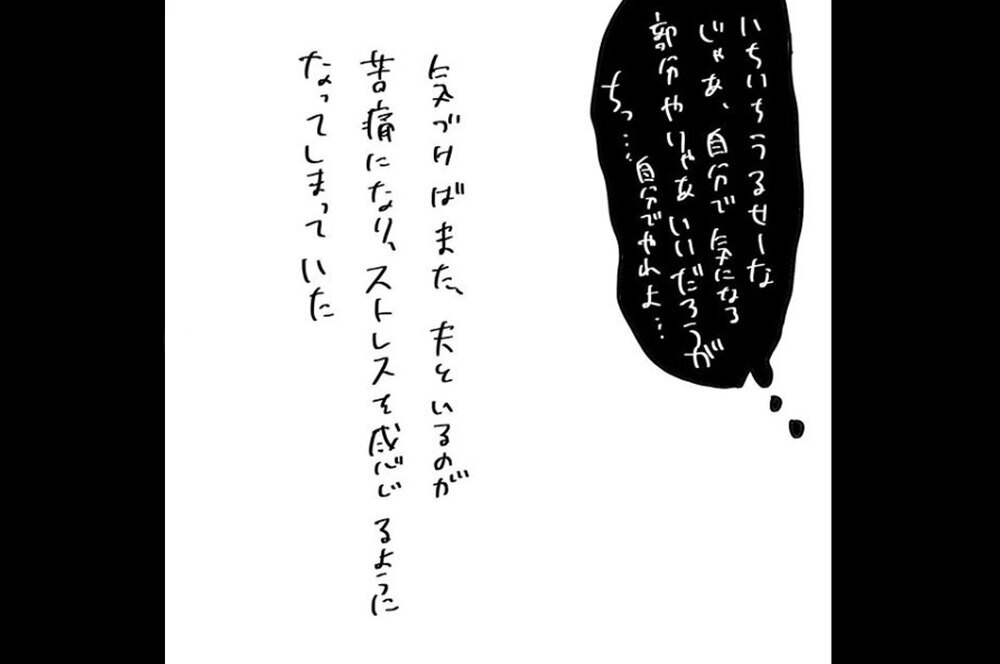 いちいちうるせーな
じゃあ、自分で気になる
部分やりゃあいいだろうが
ちっ…自分でやれよ…
気づけばまた、夫といるのが
苦痛になり、ストレスを感じるように
なってしまっていた